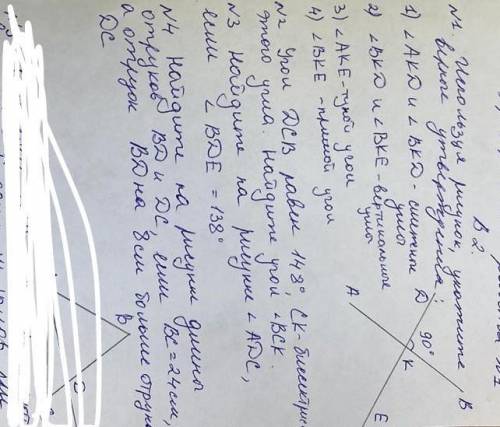 В 2.
№1. Используя рисунок, укажите
верное утверждения:
1) ∠AKD и ∠BKD - смежные
углы
2) ∠BKD и ∠BKE - вертикальные
углы
3) ∠AKE - тупой угол
4) ∠BKE - прямой угол
D
90°
B
A
K
E
№2 Угол DCB равен 148°, CK - биссектри
этого угла. Найдите угол ∠BCK.
№3 Найдите на рисунке ∠ADC,
если ∠BDE = 138°
№4 Найдите на рисунке длины
отрузков BD и DC, если BC = 24см,
а отрузок BD на 8см больше отрузк
DC
B